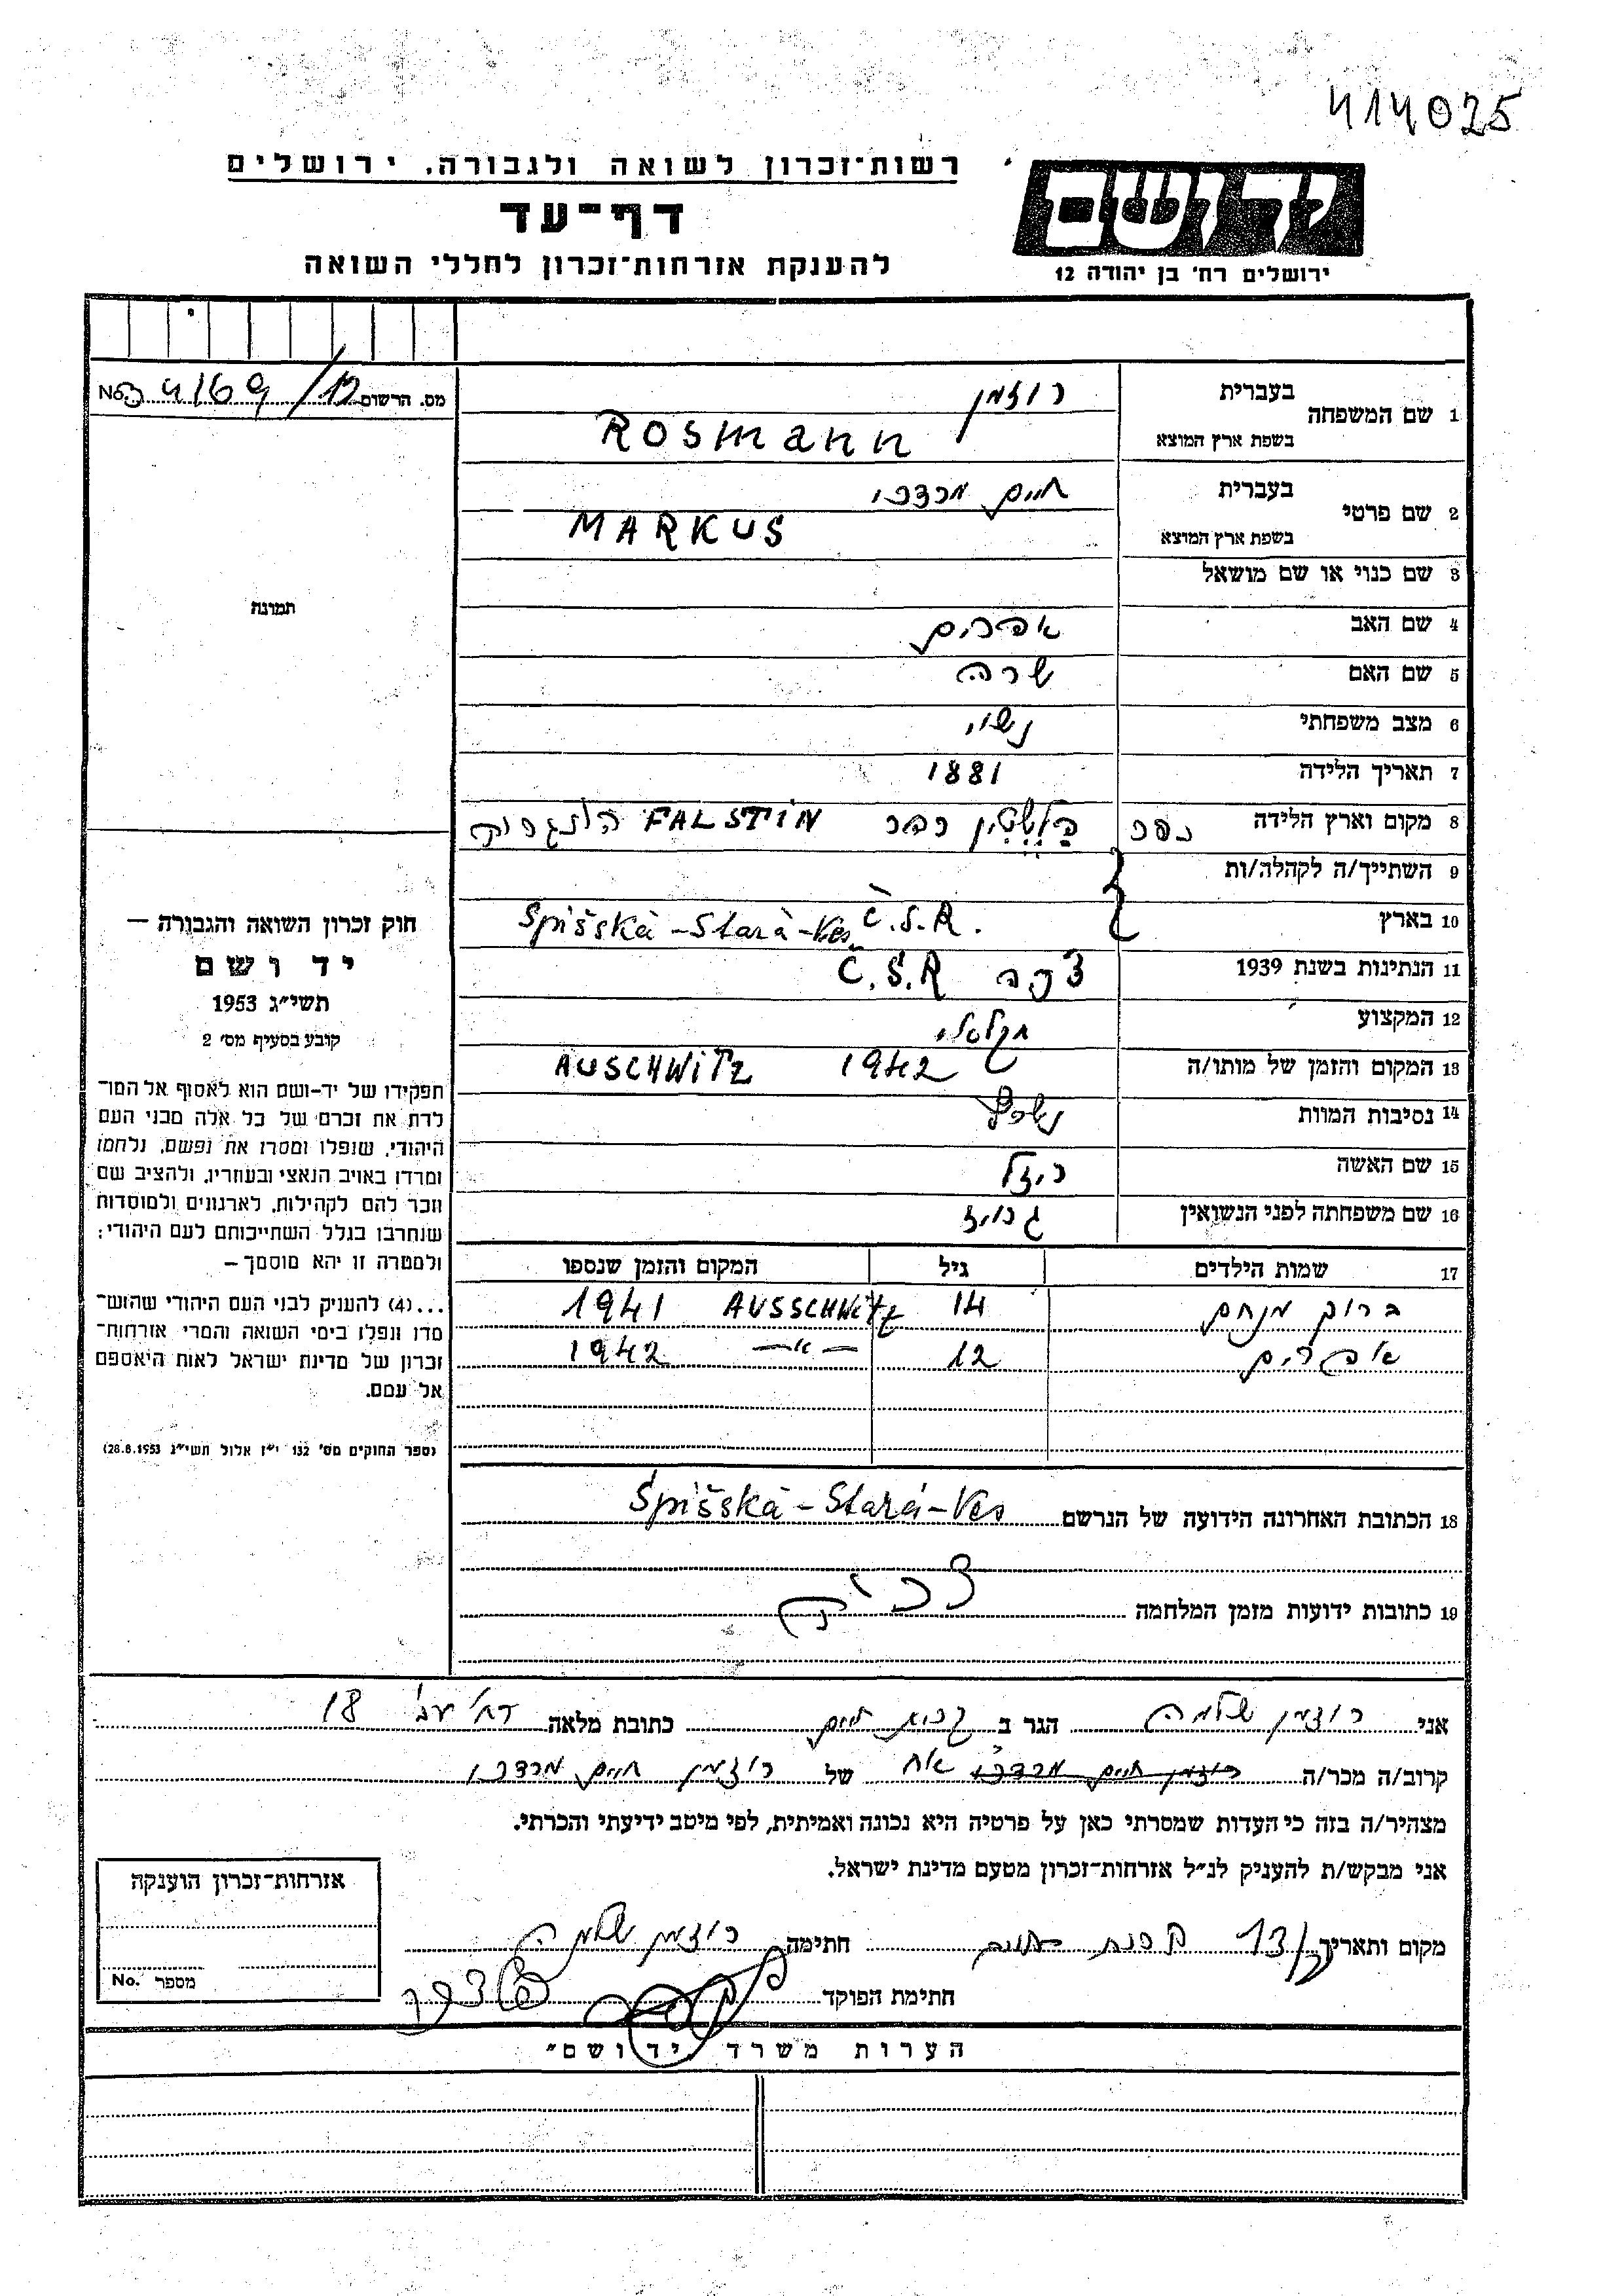 414025
רשות־זכרון לשואה ולגבורה, ירושלים
יד ושם
דף־עד
להענקת אזרחות־זכרון לחללי השואה
ירושלים רח' בן יהודה 12
מס. הרשום 4169/12 No.
1 שם המשפחה
בעברית רוזמן
בשפת ארץ המוצא ROSMANN
2 שם פרטי
בעברית חיים מרדכי
בשפת ארץ המוצא MARKUS
3 שם כנוי או שם מושאל
תמונה
4 שם האב אברהם
5 שם האם שרה
6 מצב משפחתי נשוי
7 תאריך הלידה 1881
8 מקום וארץ הלידה כפר FALSTIN
9 השתייך/ה לקהלה/ות
10 בארץ Spišská-Stará-Ves Č.S.R.
11 הנתינות בשנת 1939 Č.S.R
12 המקצוע חקלאי
13 המקום והזמן של מותו/ה 1942 AUSCHWITZ
14 נסיבות המוות נשרף
15 שם האשה רוזל
16 שם משפחתה לפני הנשואין
17 שמות הילדים גיל המקום והזמן שנספו
ברוך מנחם 14 AUSSCHWITZ 1941
אברהם 12 —״— 1942
חוק זכרון השואה והגבורה —
יד ושם
תשי״ג 1953
קובע בסעיף מס' 2
תפקידו של יד־ושם הוא לאסוף אל המו־
לדת את זכרם של כל אלה מבני העם
היהודי, שנפלו ומסרו את נפשם, נלחמו
ומרדו באויב הנאצי ובעוזריו, ולהציב שם
וזכר להם לקהילות, לארגונים ולמוסדות
שנחרבו בגלל השתייכותם לעם היהודי;
ולמטרה זו יהא מוסמך —
...(4) להעניק לבני העם היהודי שהוש־
מדו ונפלו בימי השואה והמרי אזרחות־
זכרון של מדינת ישראל לאות היאספם
אל עמם.
(ספר החוקים מס' 132 י״ז אלול תשי״ג 28.8.1953)
18 הכתובת האחרונה הידועה של הנרשם Spišská-Stará-Ves
19 כתובות ידועות מזמן המלחמה
אני רוזמן שלמה הגר ב קרית חיים כתובת מלאה 18
קרוב/ה מכר/ה רוזמן חיים מרדכי אח של רוזמן חיים מרדכי
מצהיר/ה בזה כי העדות שמסרתי כאן על פרטיה היא נכונה ואמיתית, לפי מיטב ידיעתי והכרתי.
אני מבקש/ת להעניק לנ״ל אזרחות־זכרון מטעם מדינת ישראל.
מקום ותאריך קרית חיים חתימה רוזמן שלמה
חתימת הפוקד
אזרחות־זכרון הוענקה
מספר No.
הערות משרד ״יד ושם״